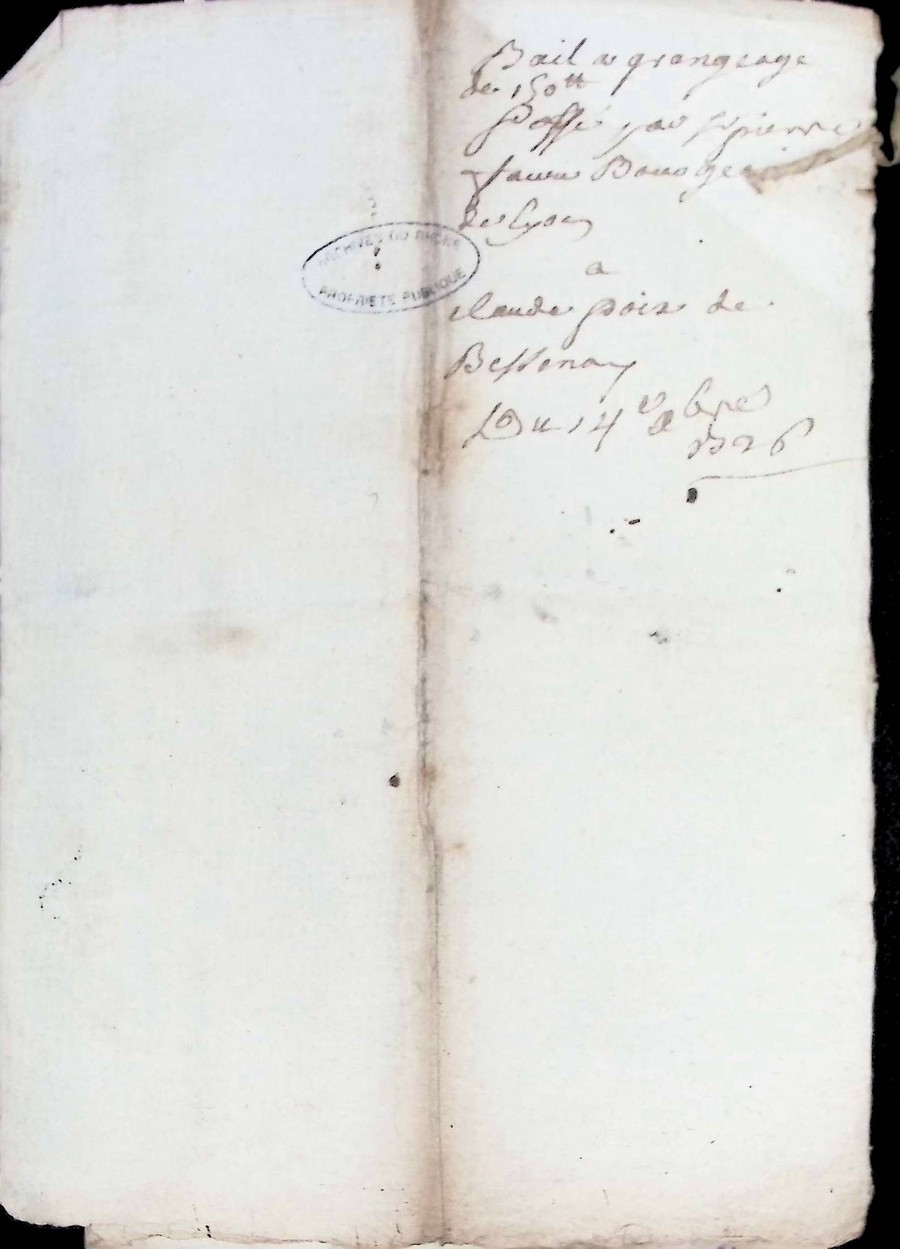 Bail a grangeage
de 150tt
Passé par sr pierre
Bourgeois
de Lyon
ARCHIVES DU RHÔNE
PROPRIETE PUBLIQUE
a
claude poix de
Bessenay
Du 14e
1726